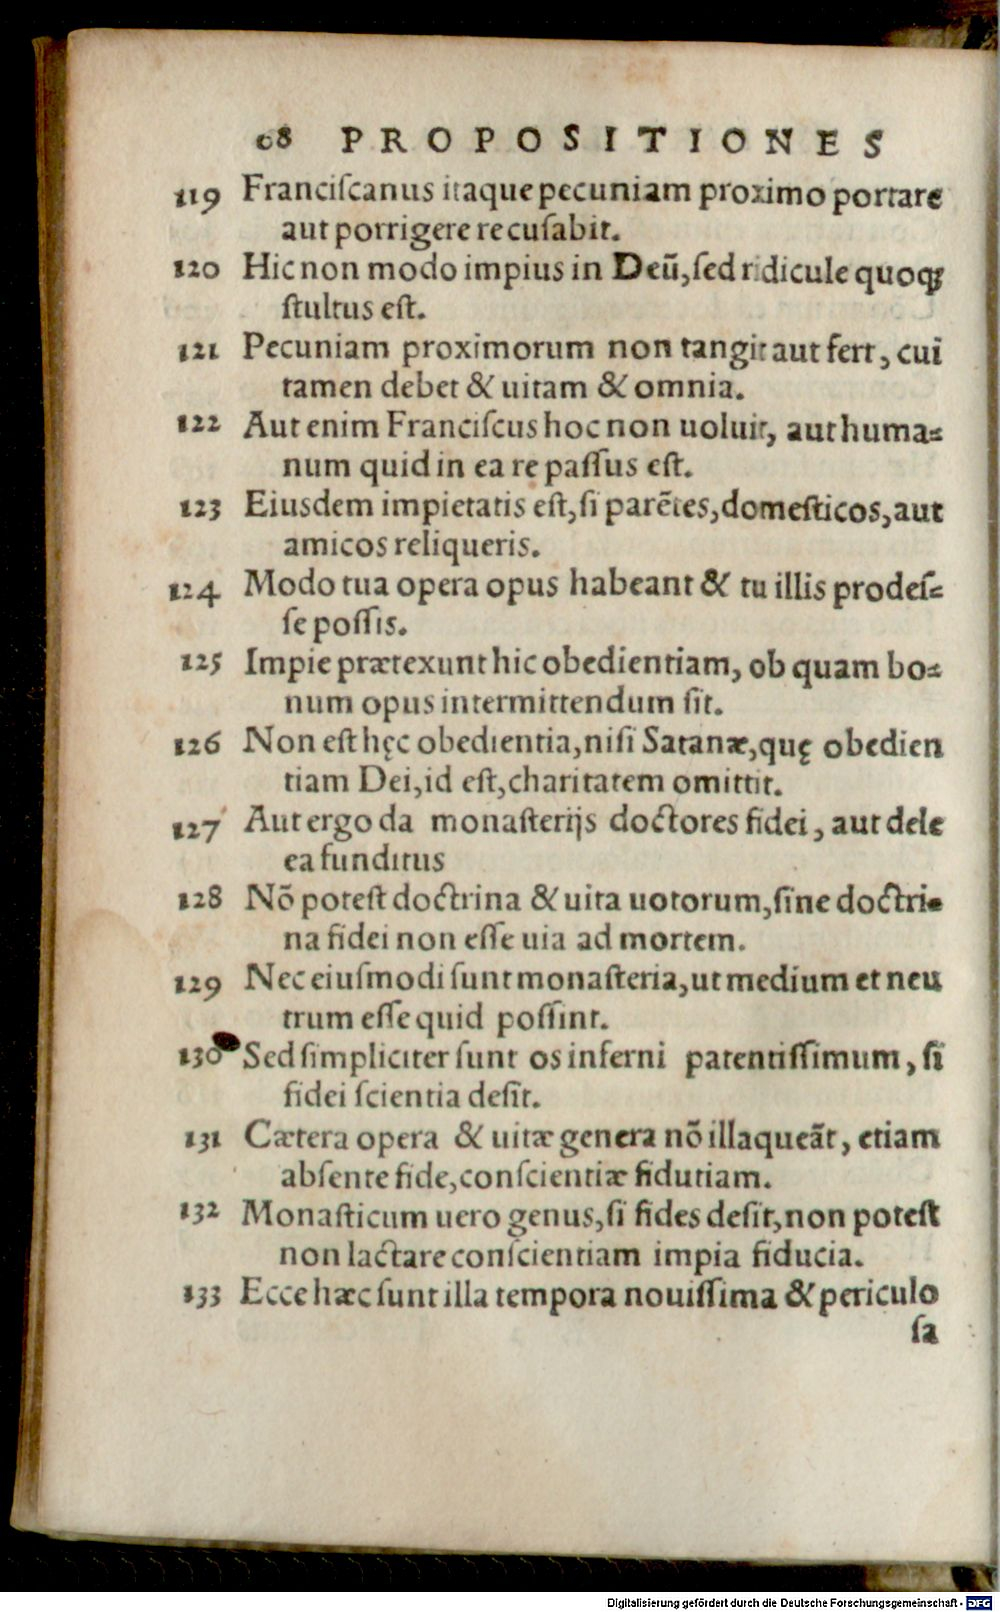 c8 PROPOSITIONES
119 Franciſcanus itaque pecuniam proximo portare
aut porrigere recuſabit.
120 Hic non modo impius in Deū, ſed ridicule quoqꝫ
ſtultus eſt.
121 Pecuniam proximorum non tangit aut fert, cui
tamen debet & uitam & omnia.
122 Aut enim Franciſcus hoc non uoluit, aut huma⸗
num quid in ea re paſſus eſt.
123 Eiusdem impietatis eſt, ſi parẽtes, domeſticos, aut
amicos reliqueris.
124 Modo tua opera opus habeant & tu illis prodeſ⸗
ſe poſſis.
125 Impie prætexunt hic obedientiam, ob quam bo⸗
num opus intermittendum ſit.
126 Non eſt hęc obedientia, niſi Satanæ, quę obedien
tiam Dei, id eſt, charitatem omittit.
127 Aut ergo da monaſterijs doctores fidei, aut dele
ea funditus
128 Nõ poteſt doctrina & uita uotorum, ſine doctri⸗
na fidei non eſſe uia ad mortem.
129 Nec eiuſmodi ſunt monaſteria, ut medium et neu
trum eſſe quid poſſint.
130 Sed ſimpliciter ſunt os inferni patentiſſimum, ſi
fidei ſcientia deſit.
131 Cætera opera & uitæ genera nõ illaqueãt, etiam
abſente fide, conſcientiæ fidutiam.
132 Monaſticum uero genus, ſi fides deſit, non poteſt
non lactare conſcientiam impia fiducia.
133 Ecce hæc ſunt illa tempora nouiſſima & periculo
ſa
Digitalisierung gefördert durch die Deutsche Forschungsgemeinschaft - DFG